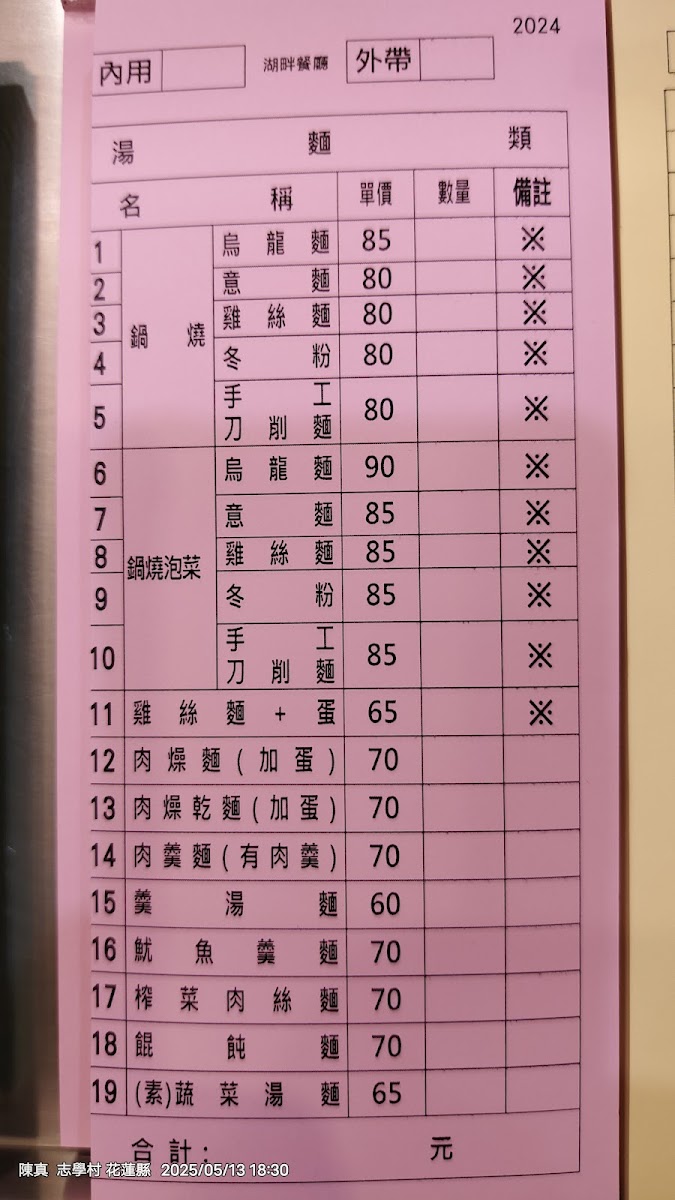 2024
內用 湖畔餐廳 外帶
湯麵類
名稱 單價 數量 備註
1 鍋燒 烏龍麵 85 ※
2 意麵 80 ※
3 雞絲麵 80 ※
4 冬粉 80 ※
5 手工刀削麵 80 ※
6 鍋燒泡菜 烏龍麵 90 ※
7 意麵 85 ※
8 雞絲麵 85 ※
9 冬粉 85 ※
10 手工刀削麵 85 ※
11 雞絲麵+蛋 65 ※
12 肉燥麵(加蛋) 70
13 肉燥乾麵(加蛋) 70
14 肉羹麵(有肉羹) 70
15 羹湯麵 60
16 魷魚羹麵 70
17 榨菜肉絲麵 70
18 餛飩麵 70
19 (素)蔬菜湯麵 65
合計: 元
陳真 志學村 花蓮縣 2025/05/13 18:30